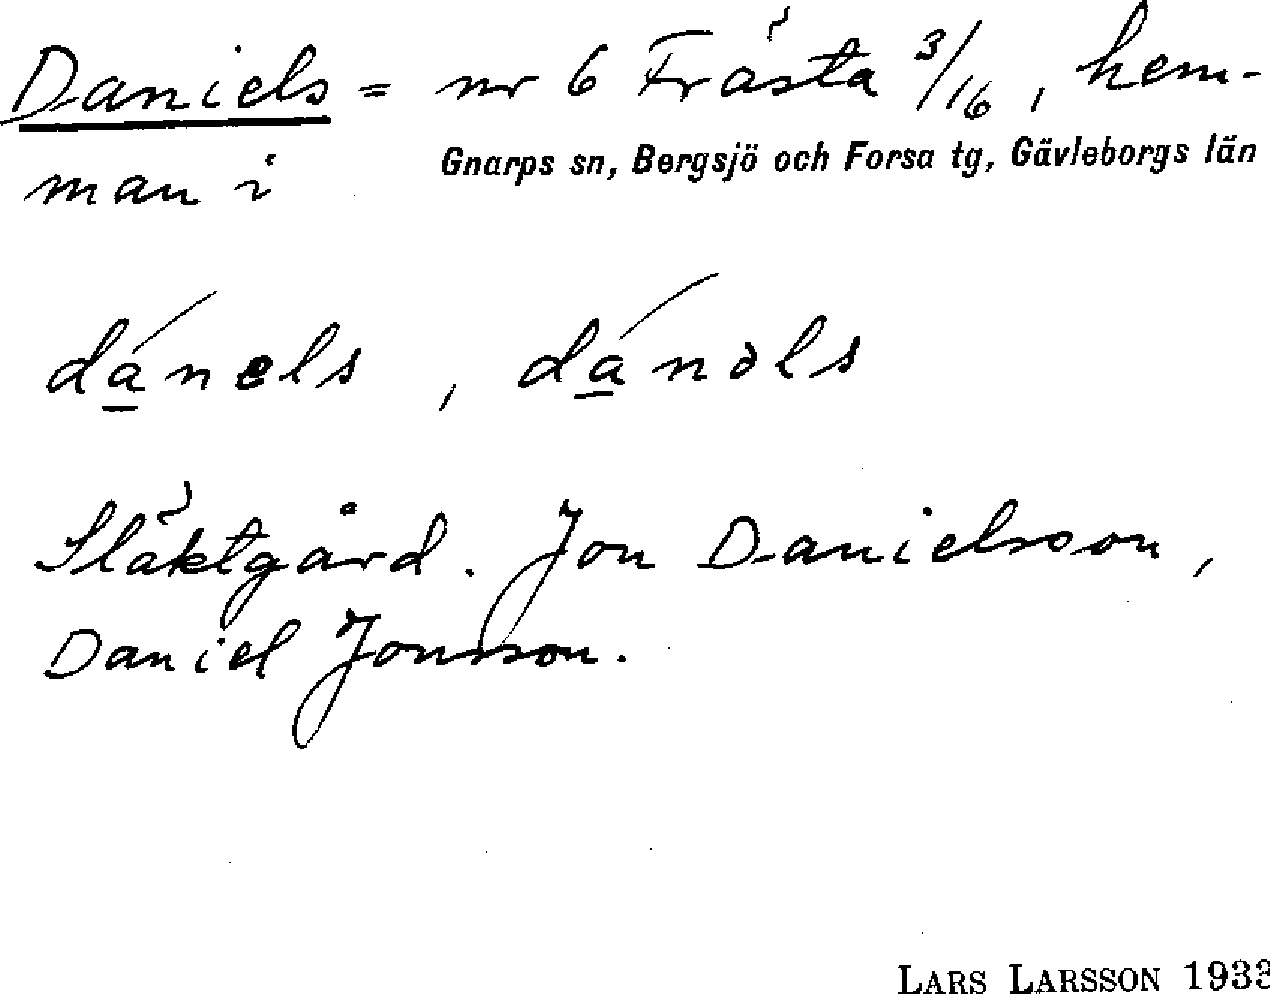 Daniels = nr 6 Frästa 3/16, hem-
man i Gnarps sn, Bergsjö och Forsa tg, Gävleborgs län
dá̱nels, dá̱nəls
Släktgård. Jon Danielsson,
Daniel Jonsson.
LARS LARSSON 1933